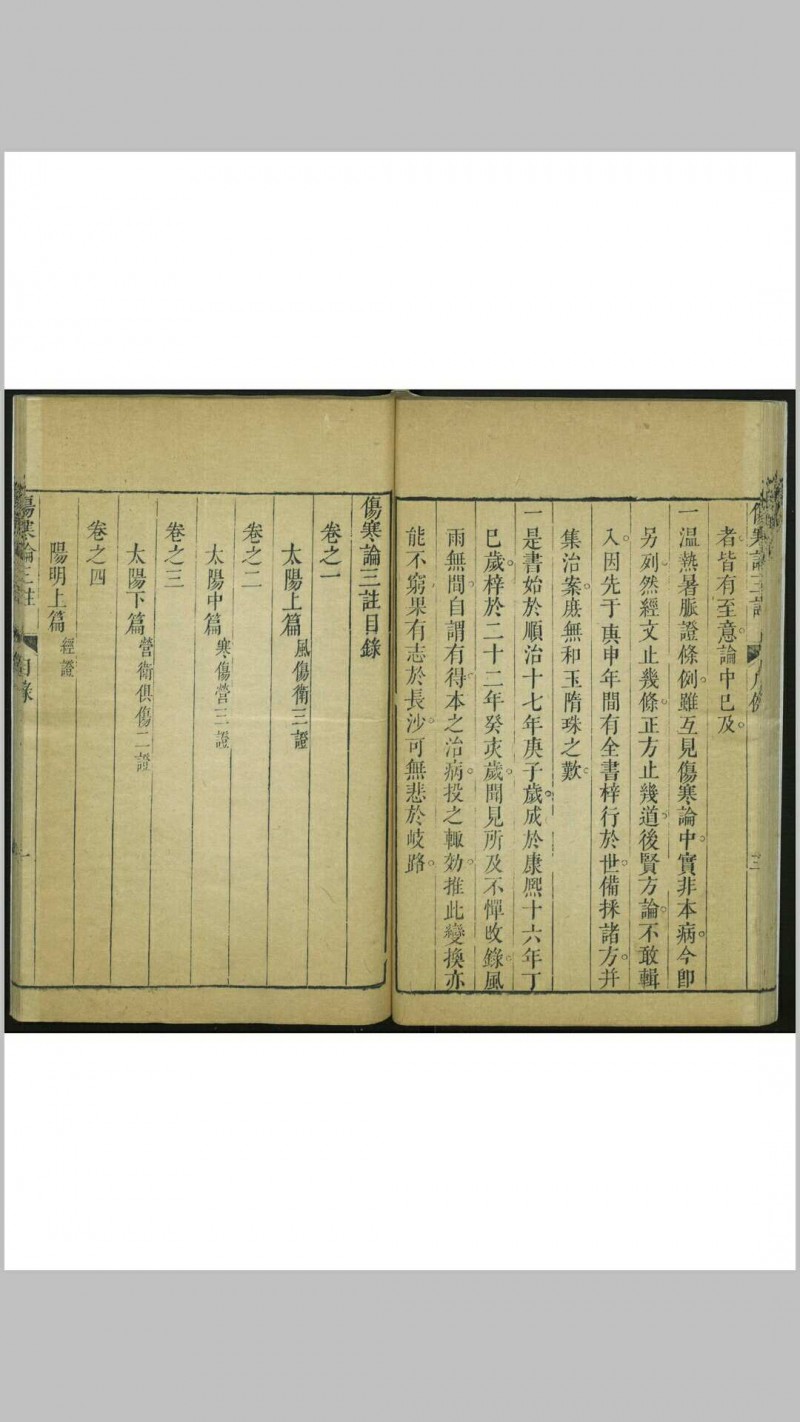 者皆有至意論中已及
一溫熱暑脈證條例雖互見傷寒論中實非本病今卽
另列然經文止幾條正方止幾道後賢方論不敢輯
入因先于庚申年間有全書梓行於世備採諸方幷
集治案庶無和玉隋珠之歎
一是書始於順治十七年庚子歲成於康熙十六年丁
巳歲梓於二十二年癸亥歲聞見所及不憚收錄風
雨無間自謂有得本之治病投之輒効推此變換亦
能不窮果有志於長沙可無悲於岐路
傷寒論三註目錄
卷之一
太陽上篇 風傷衛三證
卷之二
太陽中篇 寒傷營三證
卷之三
太陽下篇 營衛俱傷二證
卷之四
陽明上篇 經證
傷寒論三註 目錄 一